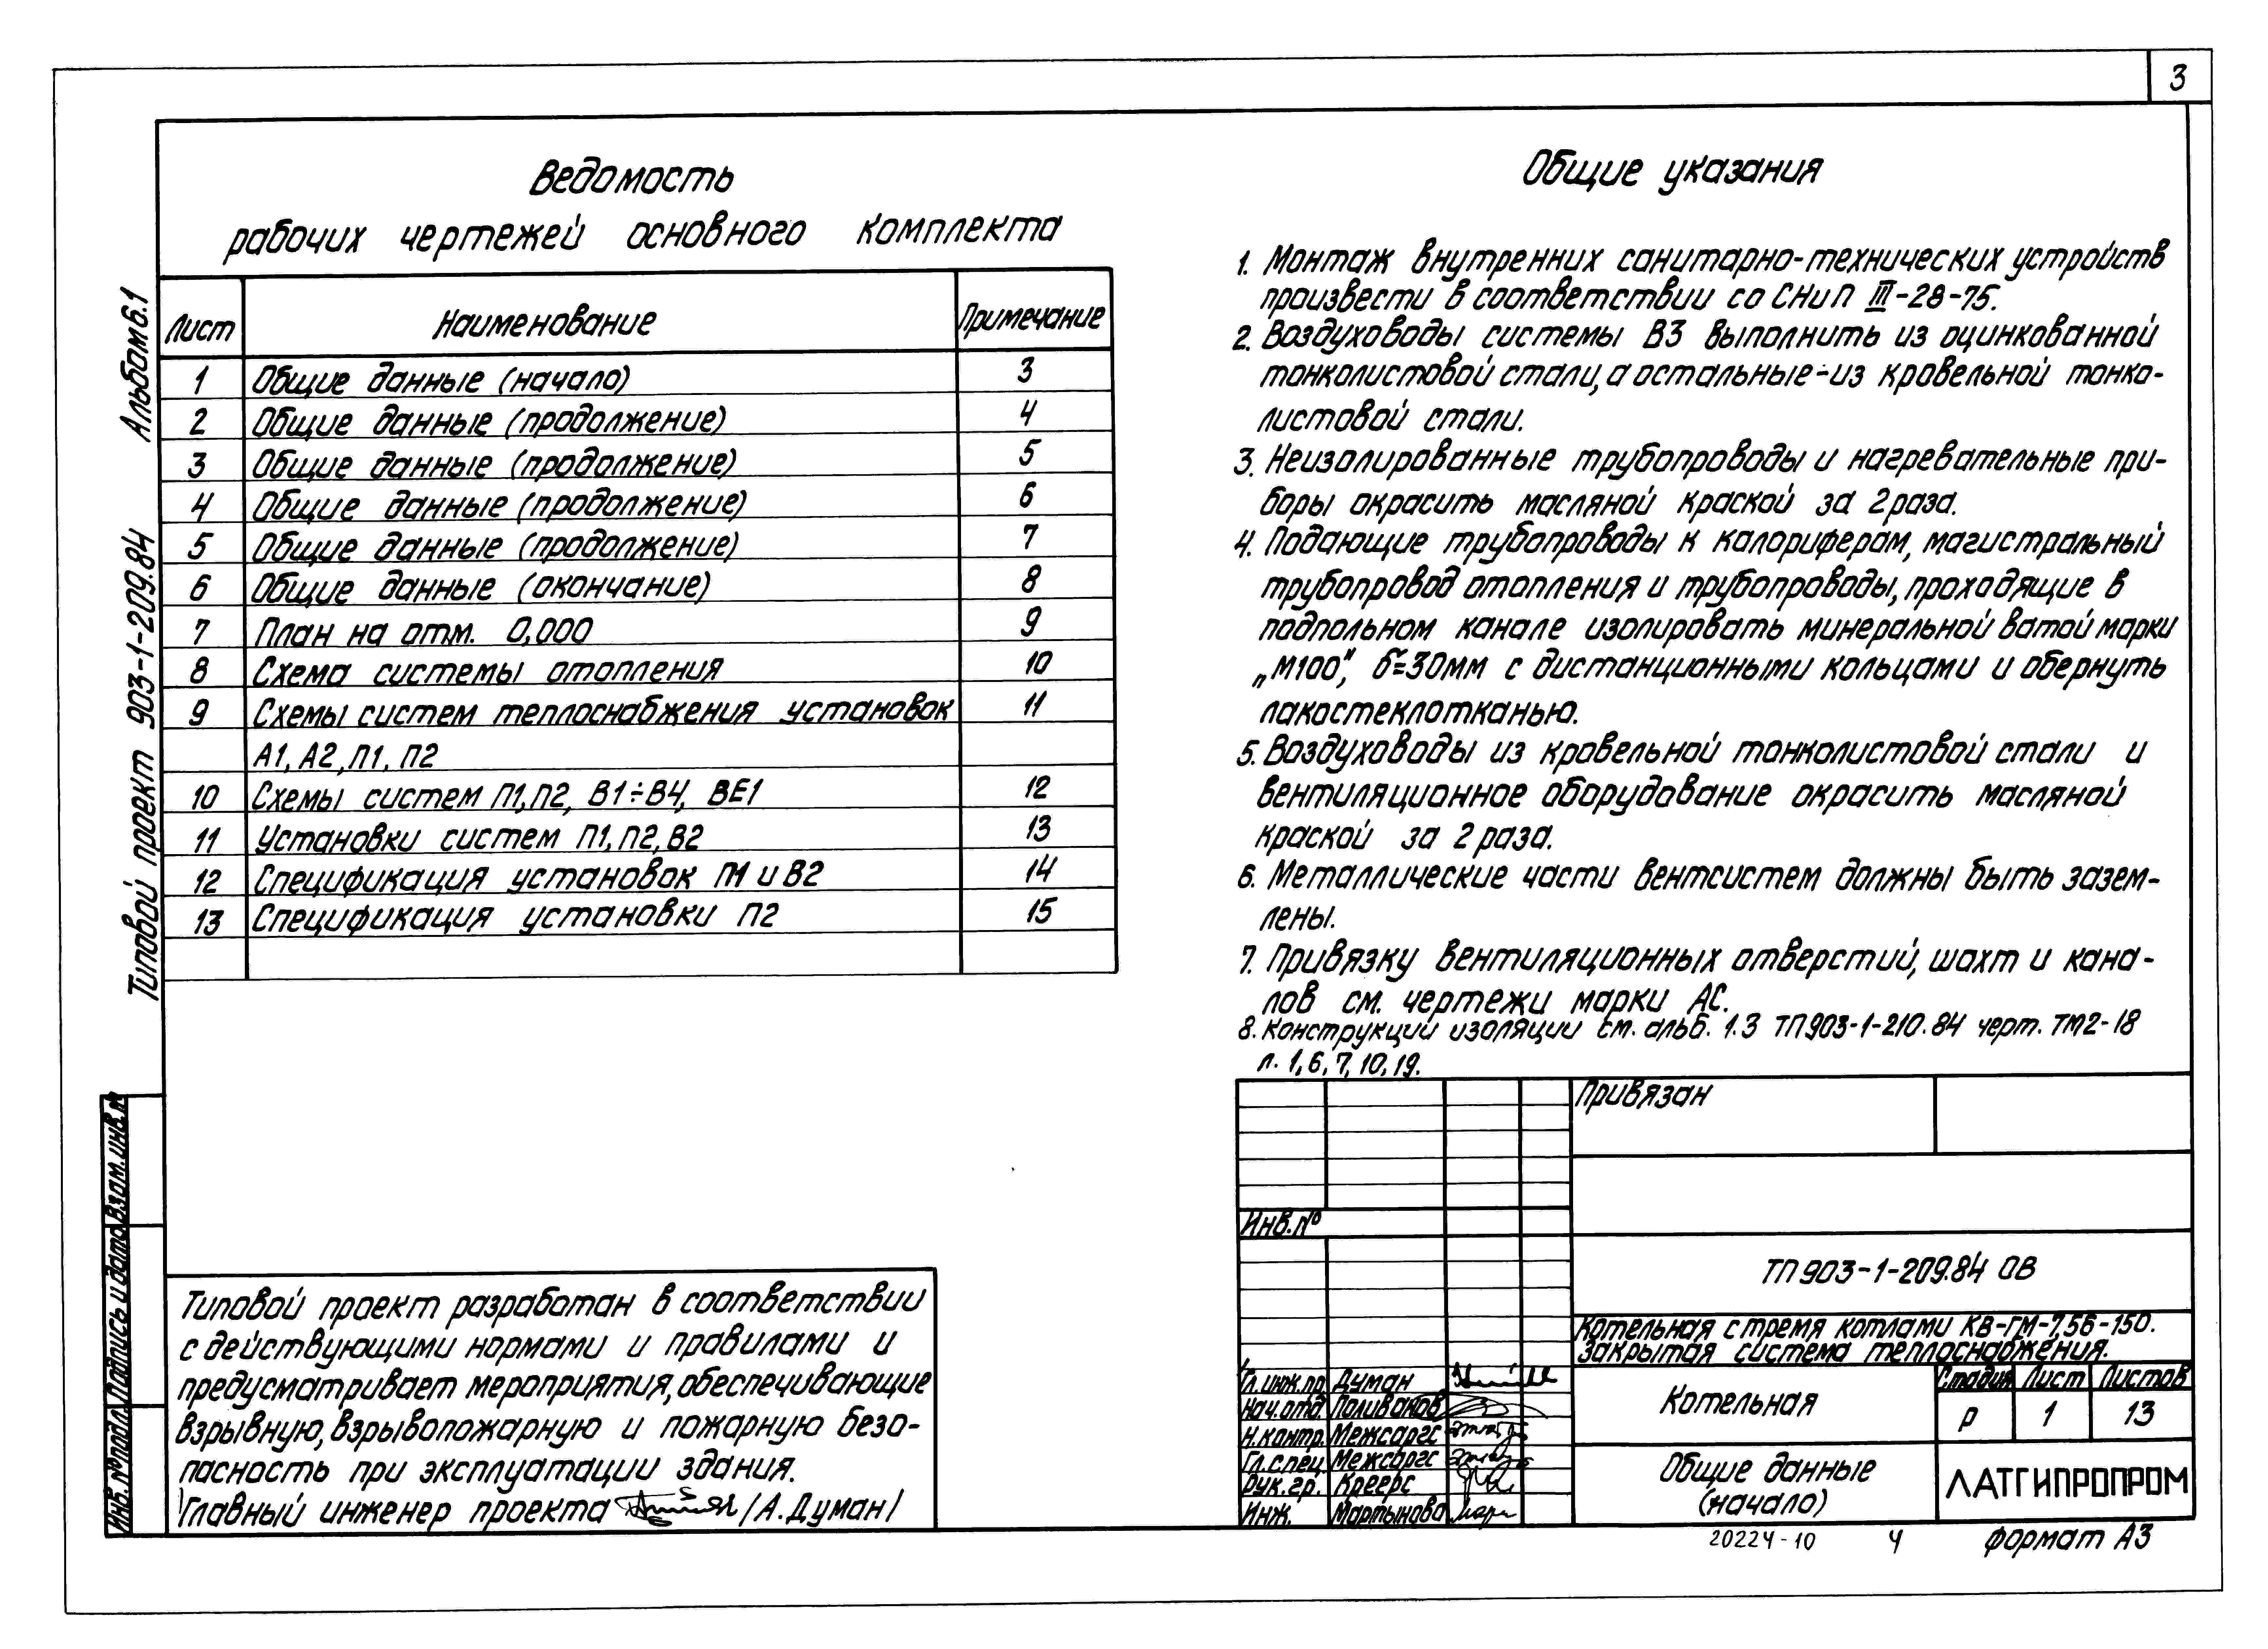 3
Ведомость
рабочих чертежей основного комплекта
Лист Наименование Примечание
1 Общие данные (начало) 3
2 Общие данные (продолжение) 4
3 Общие данные (продолжение) 5
4 Общие данные (продолжение) 6
5 Общие данные (продолжение) 7
6 Общие данные (окончание) 8
7 План на отм. 0,000 9
8 Схема системы отопления 10
9 Схемы систем теплоснабжения установок 11
А1, А2, П1, П2
10 Схемы систем П1, П2, В1÷В4, ВЕ1 12
11 Установки систем П1, П2, В2 13
12 Спецификация установок П1 и В2 14
13 Спецификация установки П2 15
Общие указания
1. Монтаж внутренних санитарно-технических устройств
произвести в соответствии со СНиП III-28-75.
2. Воздуховоды системы В3 выполнить из оцинкованной
тонколистовой стали, а остальные - из кровельной тонко-
листовой стали.
3. Неизолированные трубопроводы и нагревательные при-
боры окрасить масляной краской за 2 раза.
4. Подающие трубопроводы к калориферам, магистральный
трубопровод отопления и трубопроводы, проходящие в
подпольном канале изолировать минеральной ватой марки
„М100", δ=30мм с дистанционными кольцами и обернуть
лакостеклотканью.
5. Воздуховоды из кровельной тонколистовой стали и
вентиляционное оборудование окрасить масляной
краской за 2 раза.
6. Металлические части вентсистем должны быть зазем-
лены.
7. Привязку вентиляционных отверстий, шахт и кана-
лов см. чертежи марки АС.
8. Конструкций изоляции см. альб. 1.3 ТП903-1-210.84 черт. ТМ2-18
л. 1, 6, 7, 10, 19.
Типовой проект 903-1-209.84 Альбом 6.1
Инв.№ подл. Подпись и дата Взам. инв. №
Типовой проект разработан в соответствии
с действующими нормами и правилами и
предусматривает мероприятия, обеспечивающие
взрывную, взрывопожарную и пожарную безо-
пасность при эксплуатации здания.
Главный инженер проекта /А. Думан/
Привязан
Инв.№
ТП 903-1-209.84 ОВ
Котельная с тремя котлами КВ-ГМ-7,56-150.
Закрытая система теплоснабжения.
Гл. инж. пр. Думан
Нач. отд. Поливанов
Н. контр. Межсаргс
Гл. спец. Межсаргс
Рук. гр. Креерс
Инж. Мартынова
Котельная
Стадия Лист Листов
Р 1 13
Общие данные
(начало)
ЛАТГИПРОПРОМ
20224-10 4 формат А3